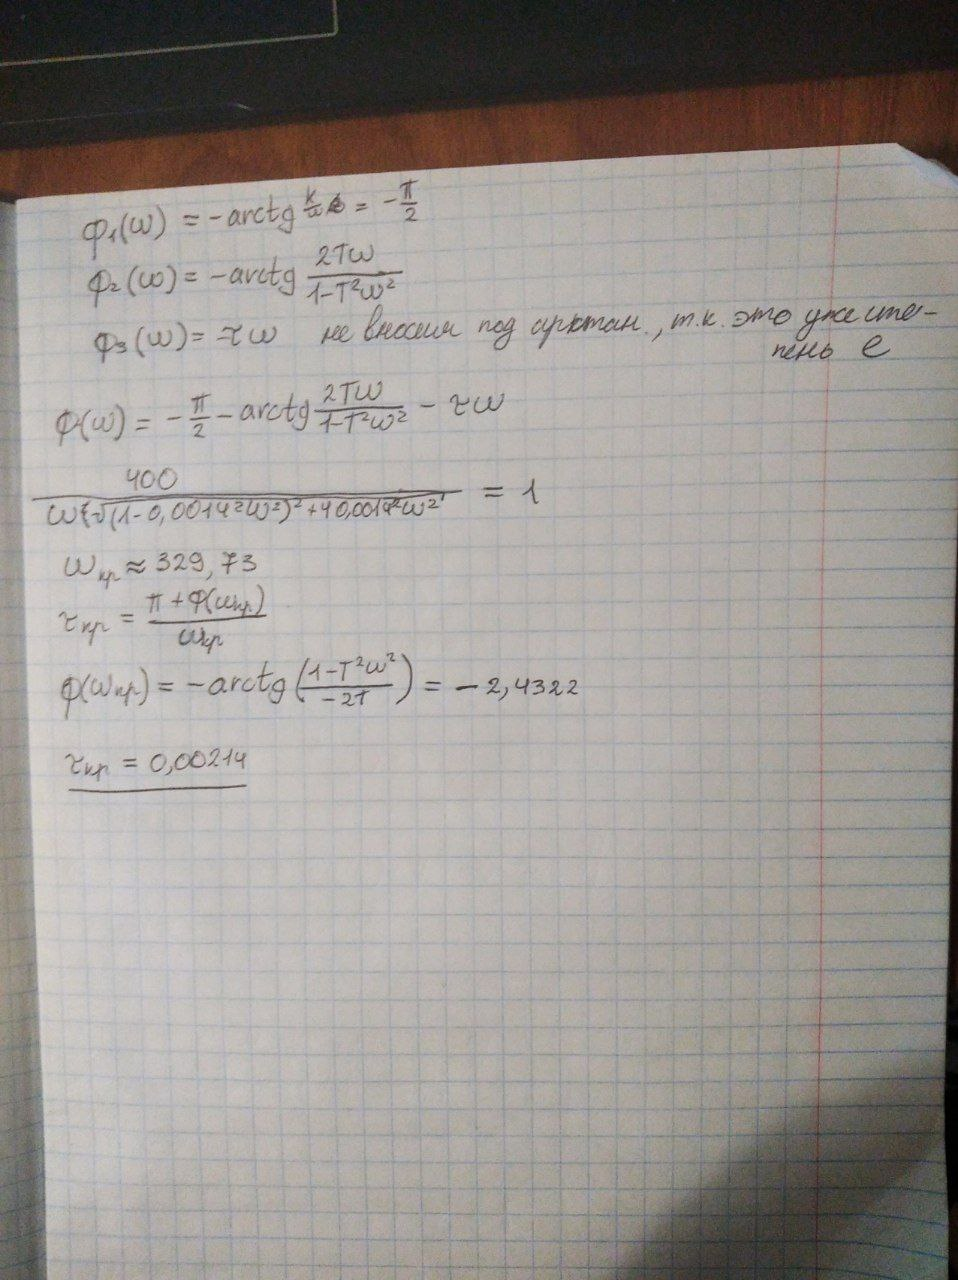 φ₁(ω) = -arctg k/ω = -π/2
φ₂(ω) = -arctg 2Tω/(1-T²ω²)
φ₃(ω) = -τω не вносим под арктан., т.к. это уже сте-
пень e
φ(ω) = -π/2 - arctg 2Tω/(1-T²ω²) - τω
400/(ω√((1-0,0014²ω²)²+4·0,0014²ω²)) = 1
ωкр ≈ 329,73
τкр = (π+φ(ωкр))/ωкр
φ(ωкр) = -arctg((1-T²ω²)/(-2T)) = -2,4322
τкр = 0,00214